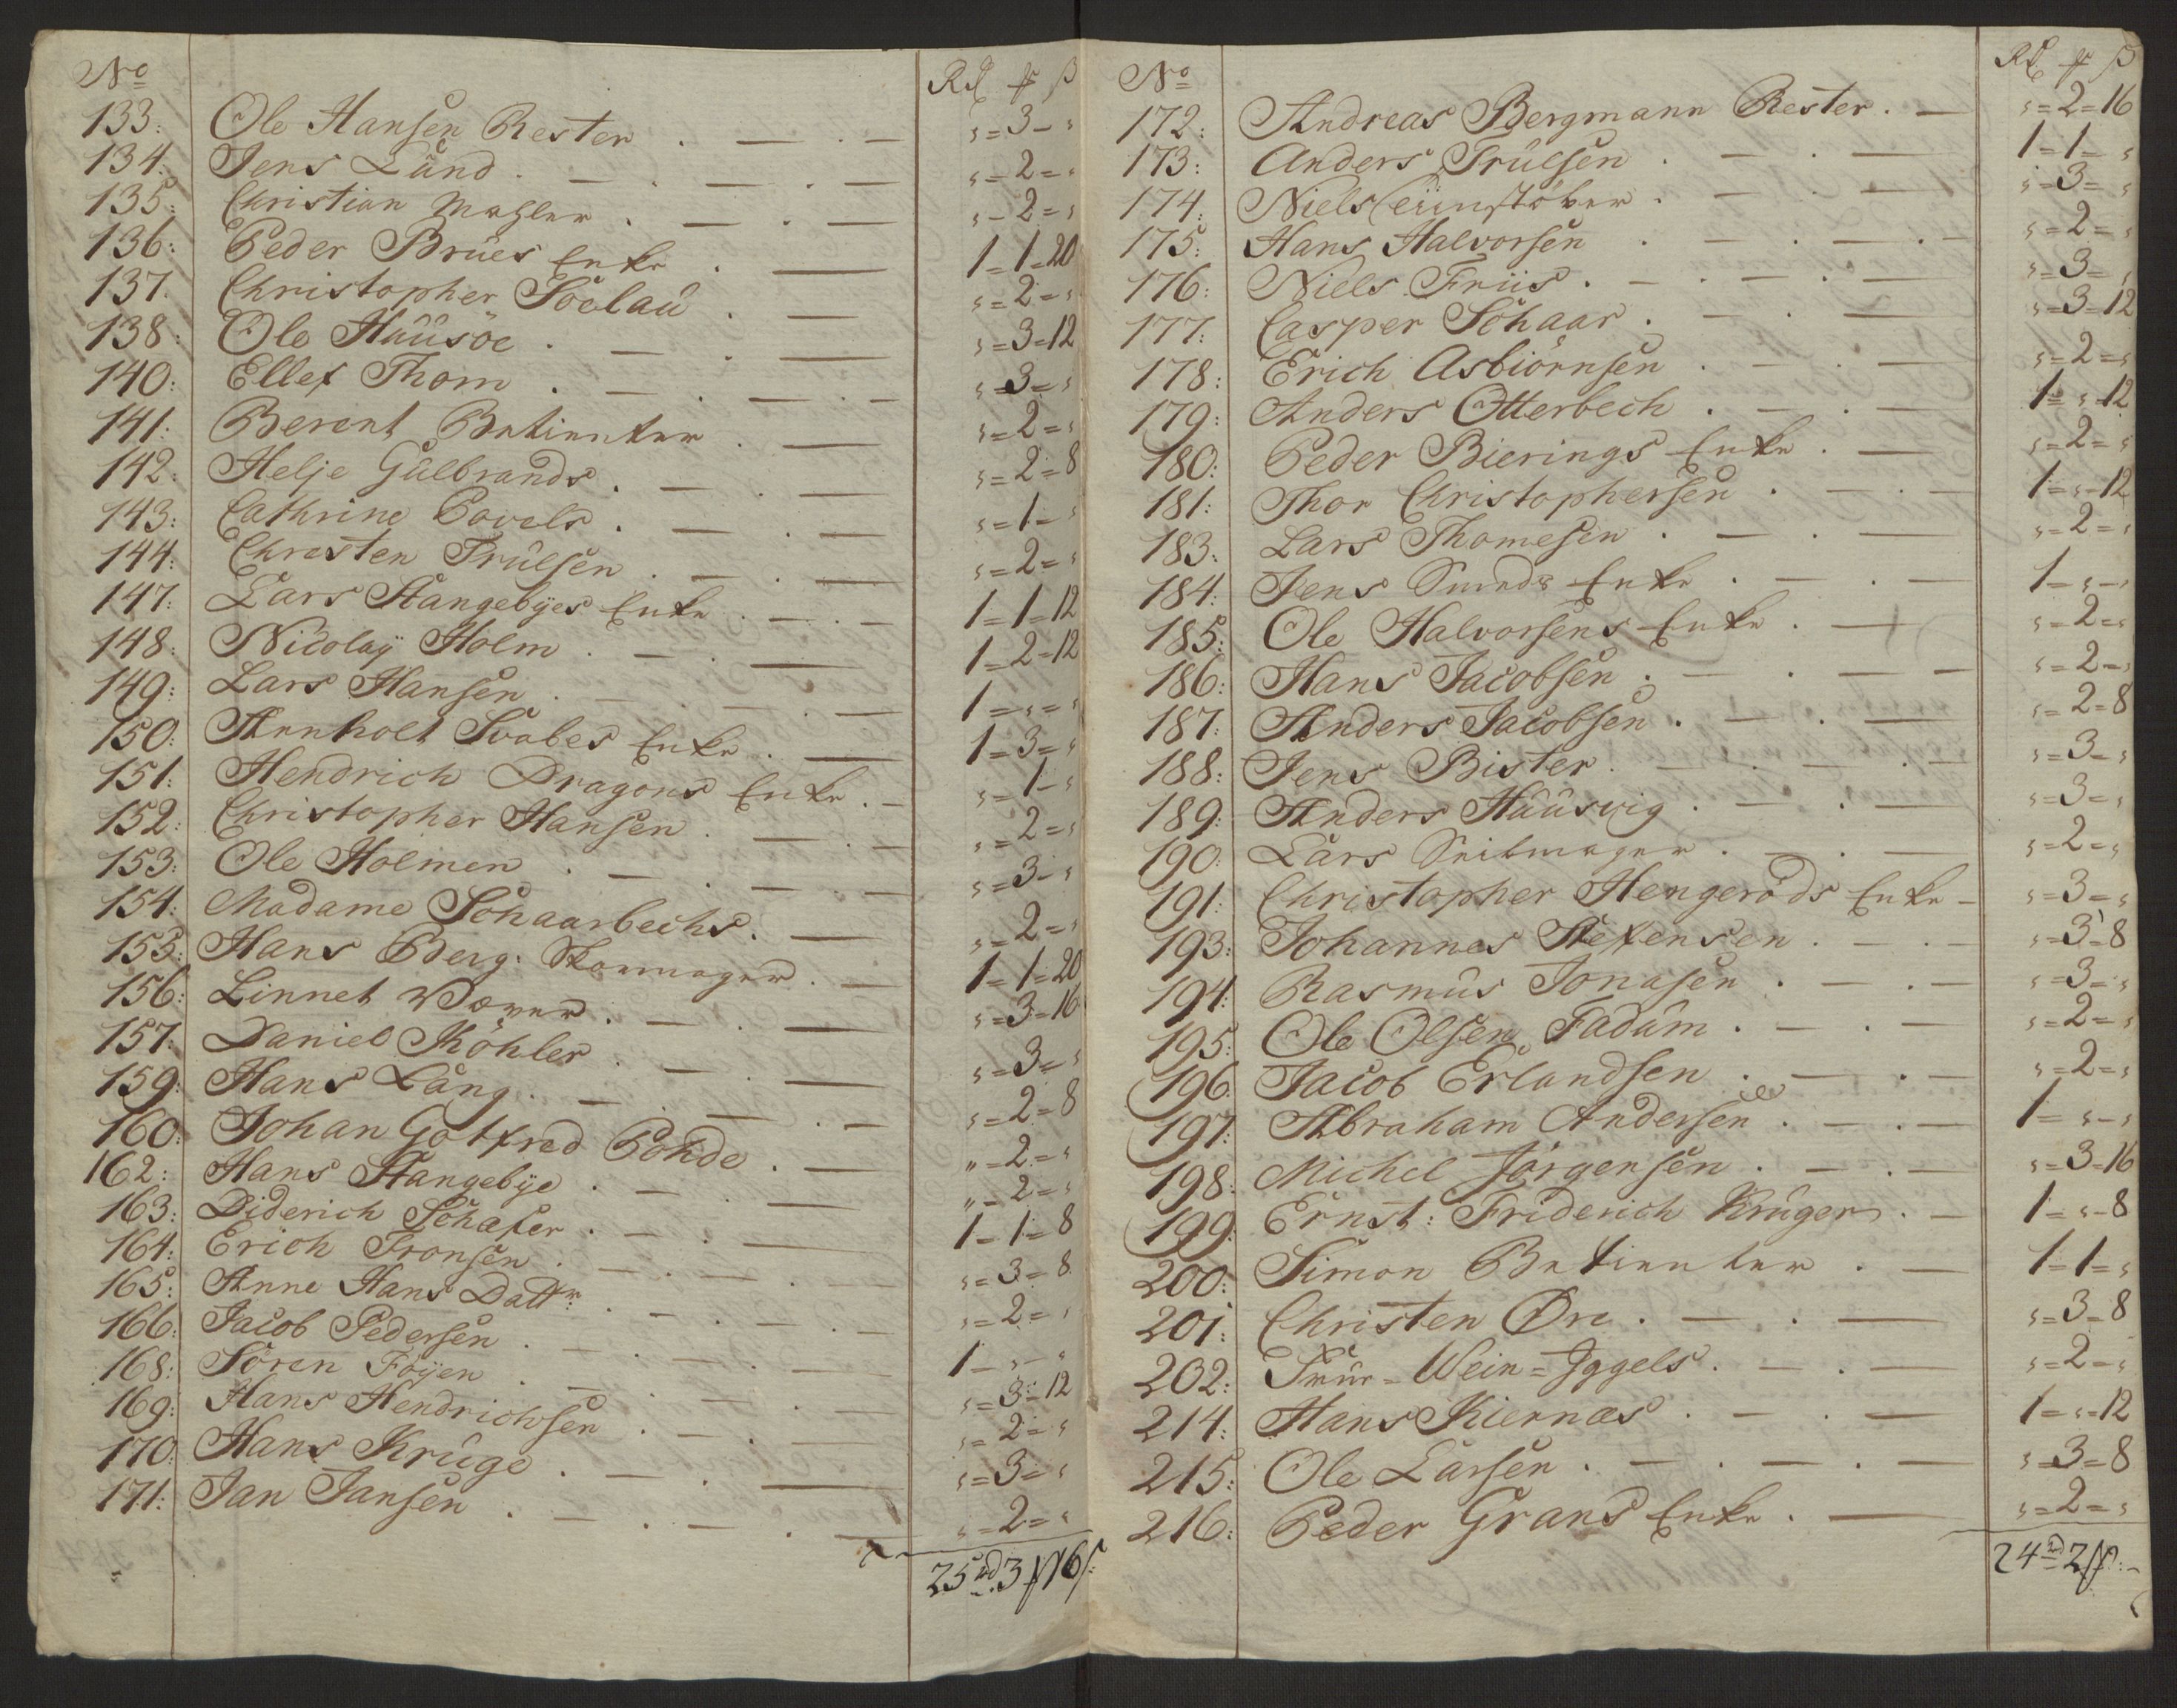 No Rd ß
133: Ole Hansen Rester . — . — " = 3 - "
134: Jens Lund . — . — . — " = 2 = "
135: Christian Mahler . — . — " - 2 = "
136: Peder Brues Enke . — 1 = 1 = 20
137. Christopher Soelau . — " = 2 = "
138: Ole Huusöe . — . — " = 3 = 12
140: Ellef Thom . — . — . — " = 3 = "
141: Berent Betienter . — " = 2 = "
142: Helje Gulbrands . — . — " = 2 = 8
143: Cathrine Povels . — . — " = 1 = "
144: Christen Trulsen . — . — " = 2 = "
147: Lars Stangebyes Enke . — . — 1 = 1 = 12
148: Nicolay Holm . — . — 1 = 2 = 12
149: Lars Hansen . — . — . — 1 = " = "
150: Arnholt Svabes Enke . — 1 = 3 = "
151: Hendrich Dragons Enke . — " = 1 - "
152: Christopher Hansen . — . — " = 2 = "
153: Ole Holmen . — . — . — " = 3 - "
154: Madame Schaarbechs . — " = 2 = "
155: Hans Eberg. Skomager . — 1 = 1 = 20
156: Linnet Væver . — . — " = 3 = 16
157: Daniel Köhler . — . — " = 3 = "
159: Hans Lang . — . — . — " = 2 = 8
160: Johan Gotfred Pohde . — " = 2 = "
162: Hans Stangebye . — . — " = 2 = "
163: Diderich Schafer . — . — 1 = 1 = 8
164: Erich Tronsen . — . — " = 3 = 8
165: Anne Hans Dattr . — . — . — " = 2 = "
166: Jacob Pedersen . — . — . — 1 - " - "
168: Sören Föyen . — . — . — " = 3 = 12
169: Hans Hendrichsen . — . — " = 2 = "
170: Hans Kruge . — . — " = 3 = "
171: Jan Jansen . — . — . — " = 2 = "
25 rd 3 16 ß:
No Rd ß
172: Andreas Bergmann Rester . — " = 2 = 16
173: Anders Trulsen . — . — 1 = 1 = "
174: Niels . — . — " = 3 = "
175: Hans Halvorsen . — . — . — " = 2 = "
176: Niels Friis . — . — . — " = 3 = "
177: Casper Schaar . — . — " = 3 = 12
178: Erich Asbiörnsen . — . — " = 2 = "
179: Anders Otterbech . — . — 1 = " = 12
180: Peder Bierings Enke . — " = 2 = "
181: Thor Christophersen . — . — 1 = " = 12
183: Lars Thomesen . — . — " = 2 = "
184: Jens Smeds Enke . — . — 1 = " - "
185: Ole Halvorsens Enke . — " = 2 = "
186: Hans Jacobsen . — . — . — " = 2 = "
187: Anders Jacobsen . — . — " = 2 = 8
188: Jens Bister . — . — . — " = 3 = "
189: Anders Huusvig . — . — " = 3 = "
190: Lars Seilmager . — . — " = 2 = "
191: Christopher Hengeröds Enke — " = 3 = "
193: Johannes Stefensen . — . — " = 3 = 8
194: Rasmus Jonasen . — . — " = 3 = "
195: Ole Olsen Fadum . — . — " = 2 = "
196. Jacob Erlandsen . — . — " = 2 = "
197: Abraham Andersen . — . — 1 = " - "
198: Michel Jörgensen . — . — " = 3 = 16
199. Ernst: Friderich Kruger . — 1 = " = 8
200: Simon Betienter . — 1 = 1 = "
201: Christen Øre . — . — " = 3 = 8
202: Frue - Wein = Iggels . — . — " = 2 = "
214: Hans Kiernæs . — . — 1 = " = 12
215: Ole Larsen . — . — . — " = 3 = 8
216: Peder Grans Enke . — " = 2 = "
24 rd 2